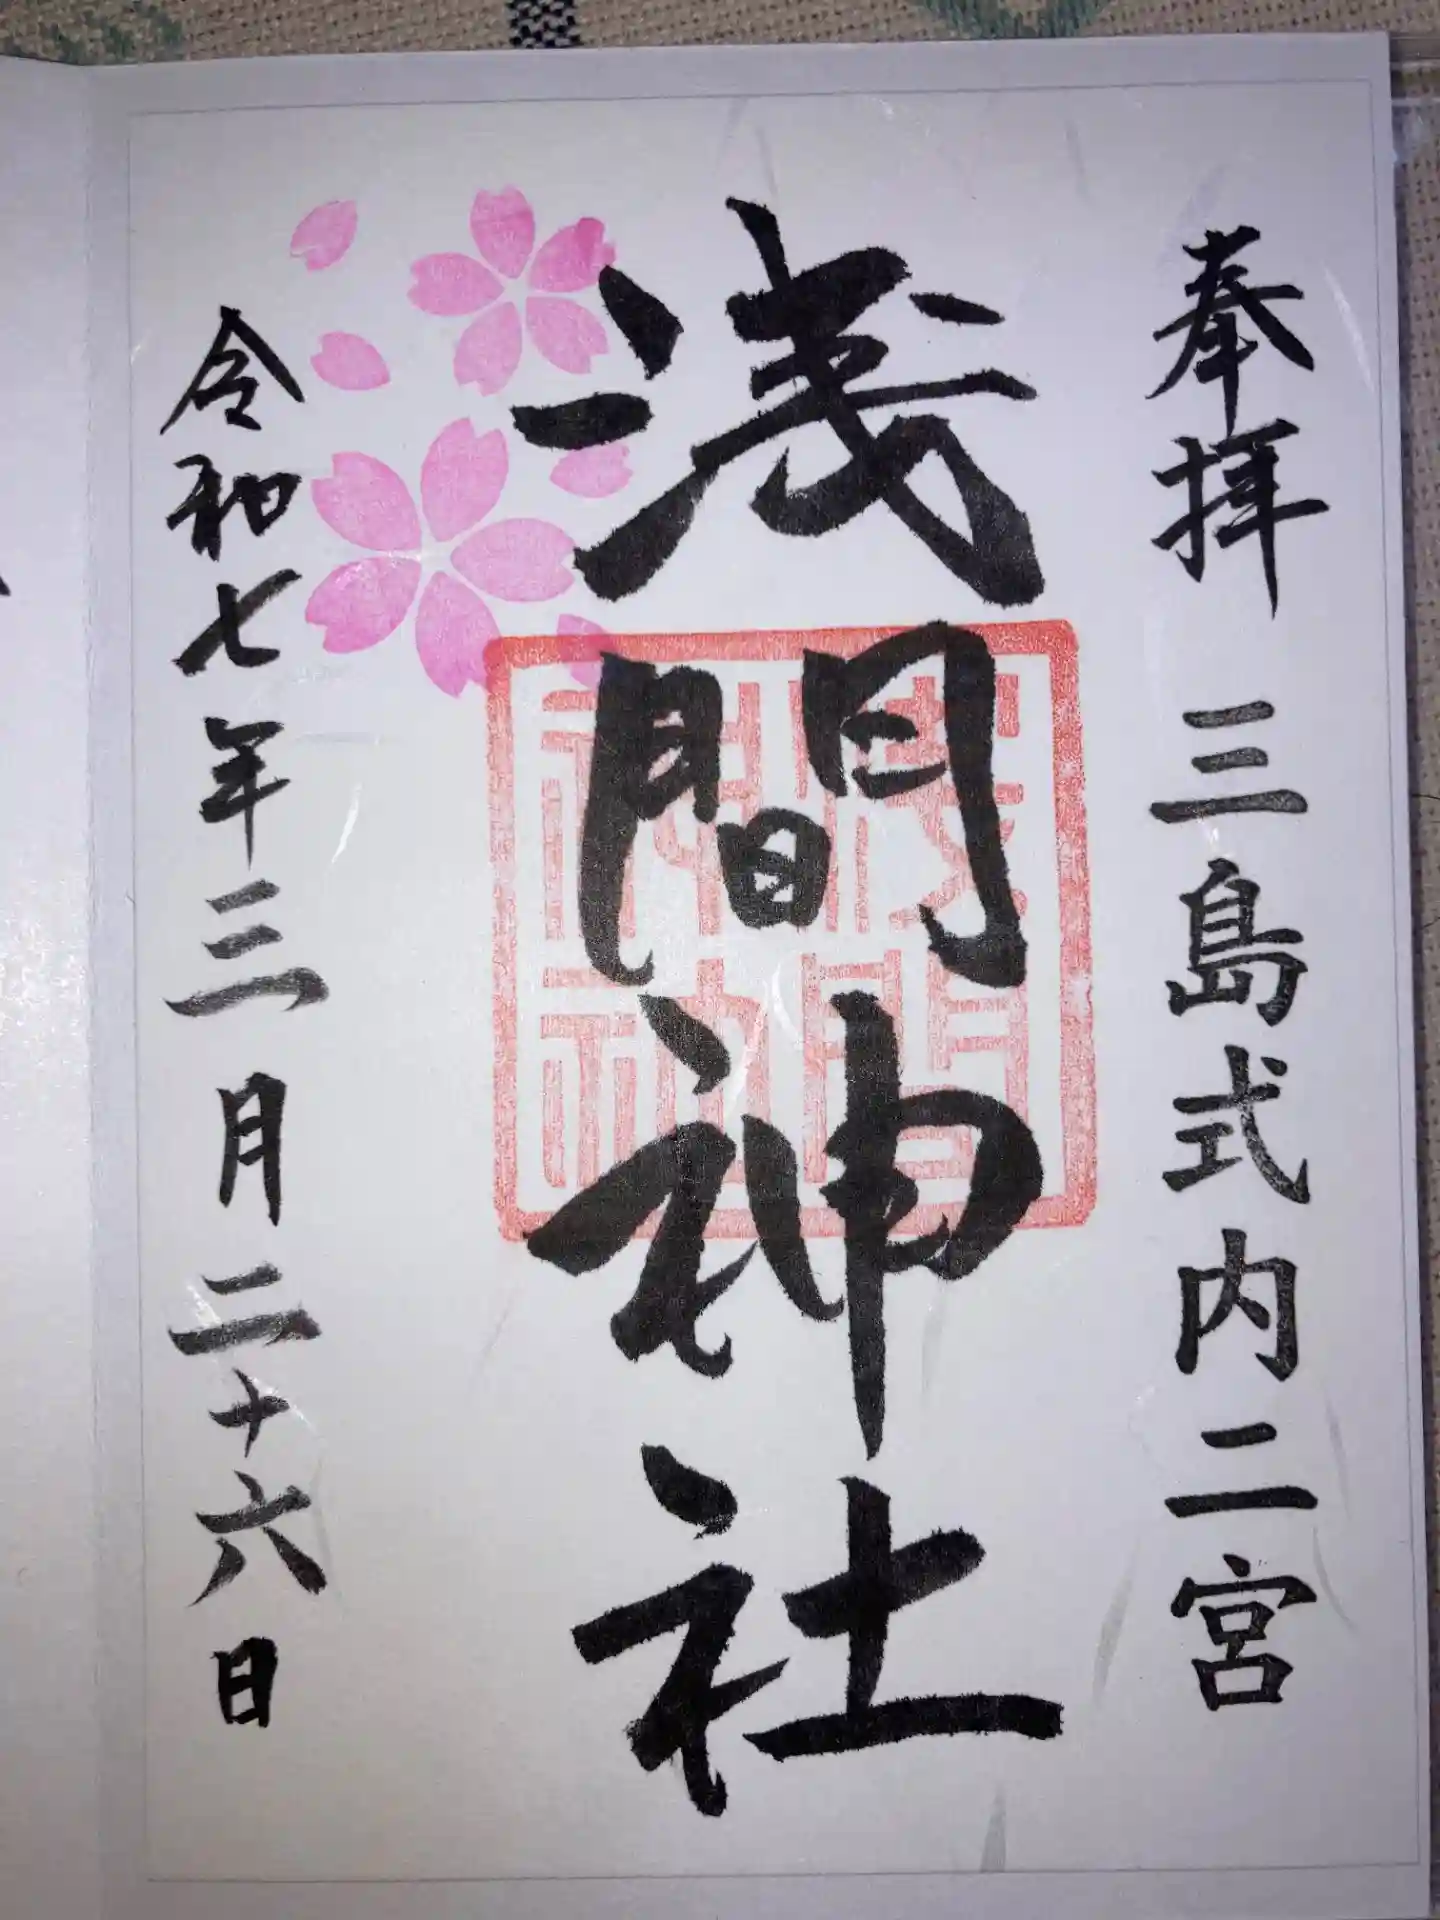 奉拝 三島式内二宮
浅間神社
令和七年三月二十六日
浅間
神社